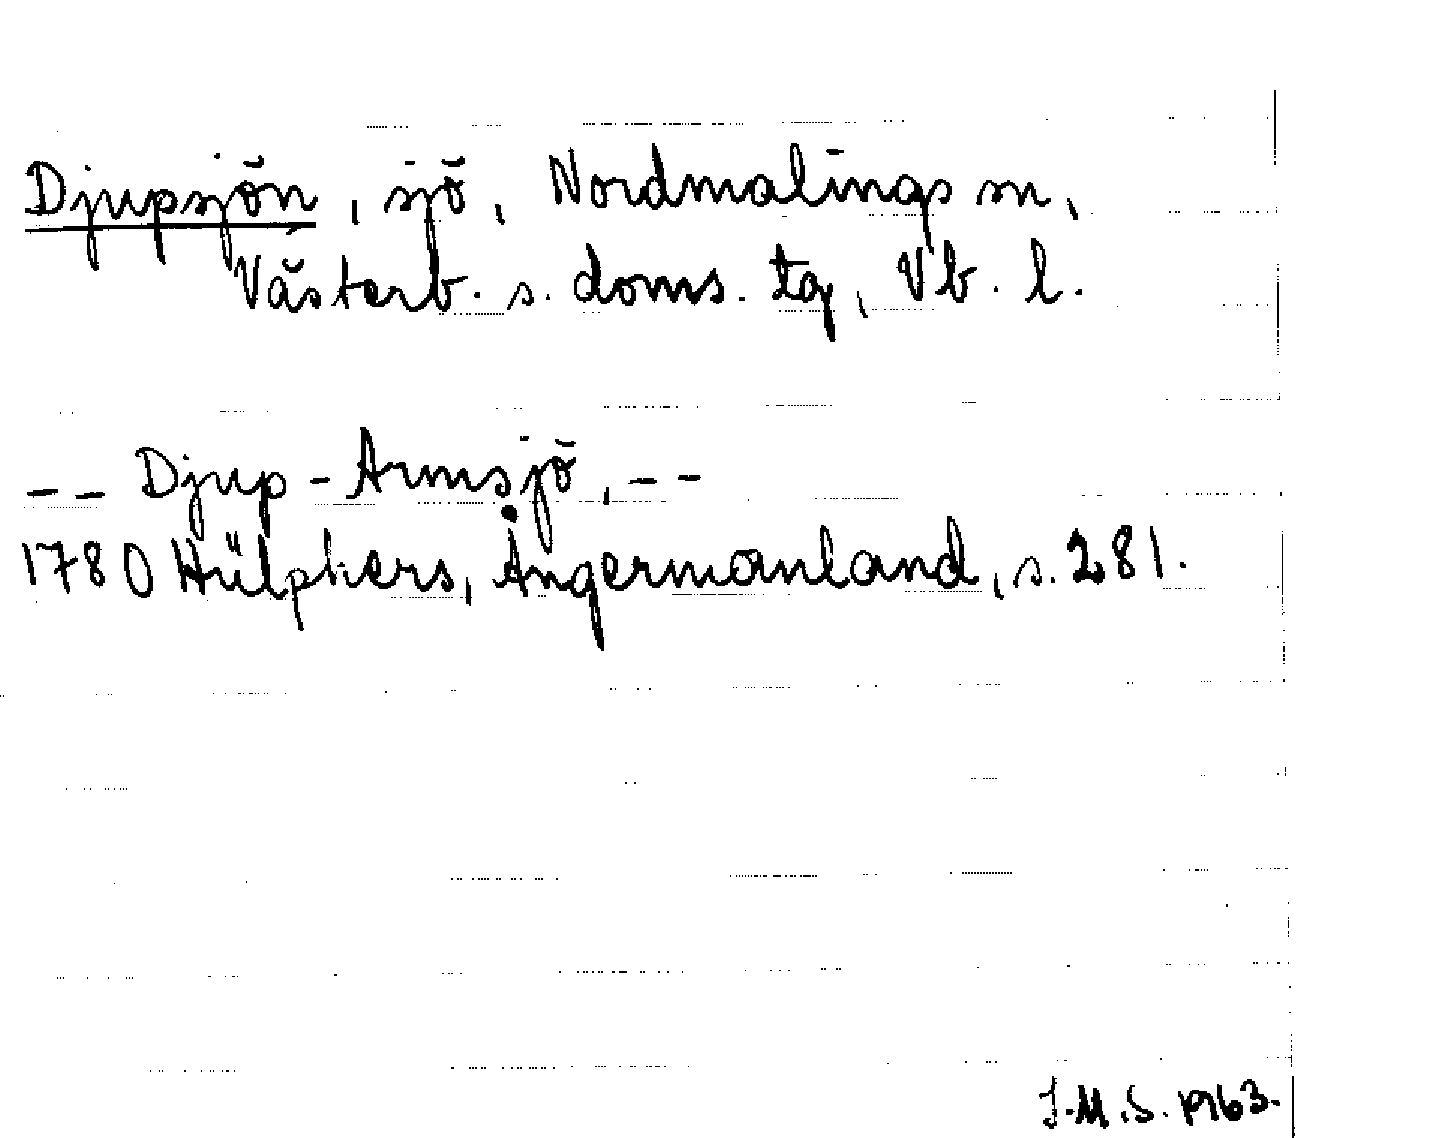 Djupsjön, sjö, Nordmalings sn,
Västerb. s. doms. tg, Vb. l.
-- Djup-Armsjö, --
1780 Hülphers, Ångermanland, s. 281.
J.M.S. 1963.